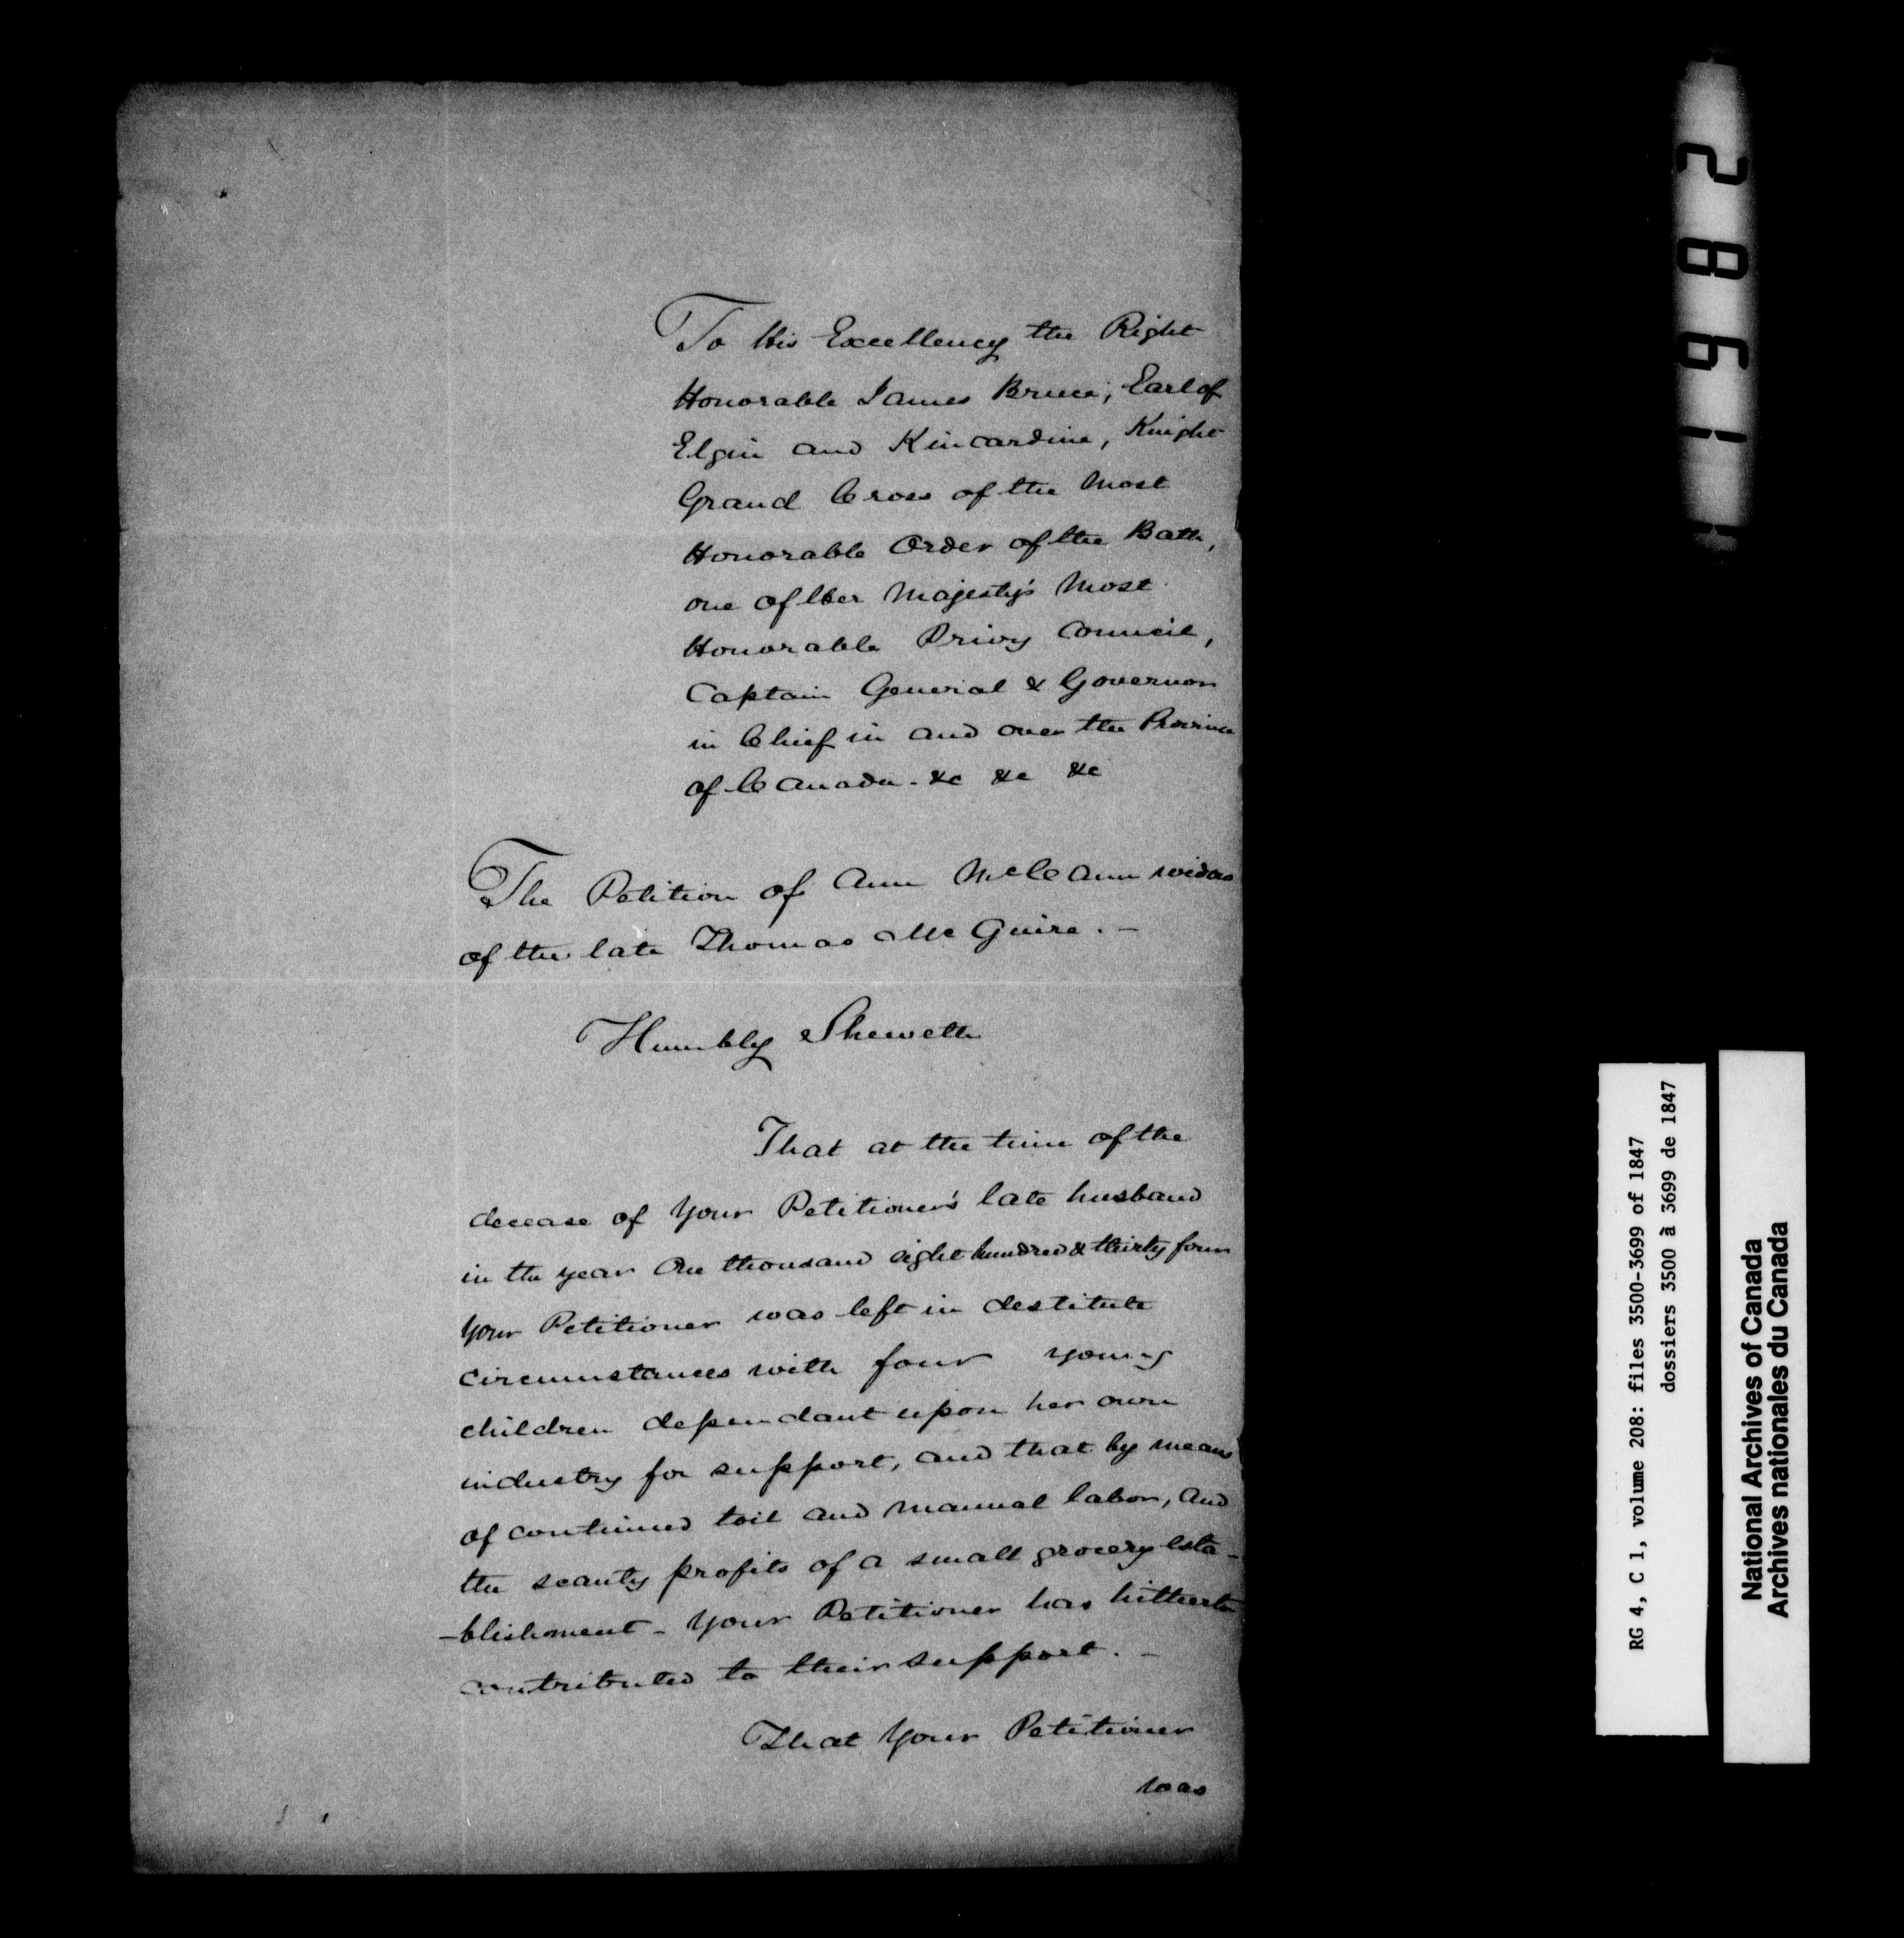 To His Excellency the Right
Honorable James Bruce, Earl of
Elgin and Kincardine, Knight
Grand Cross of the Most
Honorable Order of the Bath,
one of Her Majesty's Most
Honorable Privy Council,
Captain General & Governor
in Chief in and over the Province
of Canada - &c &c &c
The Petition of Ann McCann widow
of the late Thomas McGuire. -
Humbly Sheweth
That at the time of the
decease of Your Petitioner's late husband
in the year One thousand eight hundred & thirty four
Your Petitioner was left in destitute
circumstances with four young
children dependant upon her own
industry for support, and that by means
of continued toil and manual labor, and
the scanty profits of a small grocery esta-
-blishment - Your Petitioner has hitherto
contributed to their support. -
That Your Petitioner
was
RG 4, C 1, volume 208: files 3500-3699 of 1847
dossiers 3500 à 3699 de 1847
National Archives of Canada
Archives nationales du Canada